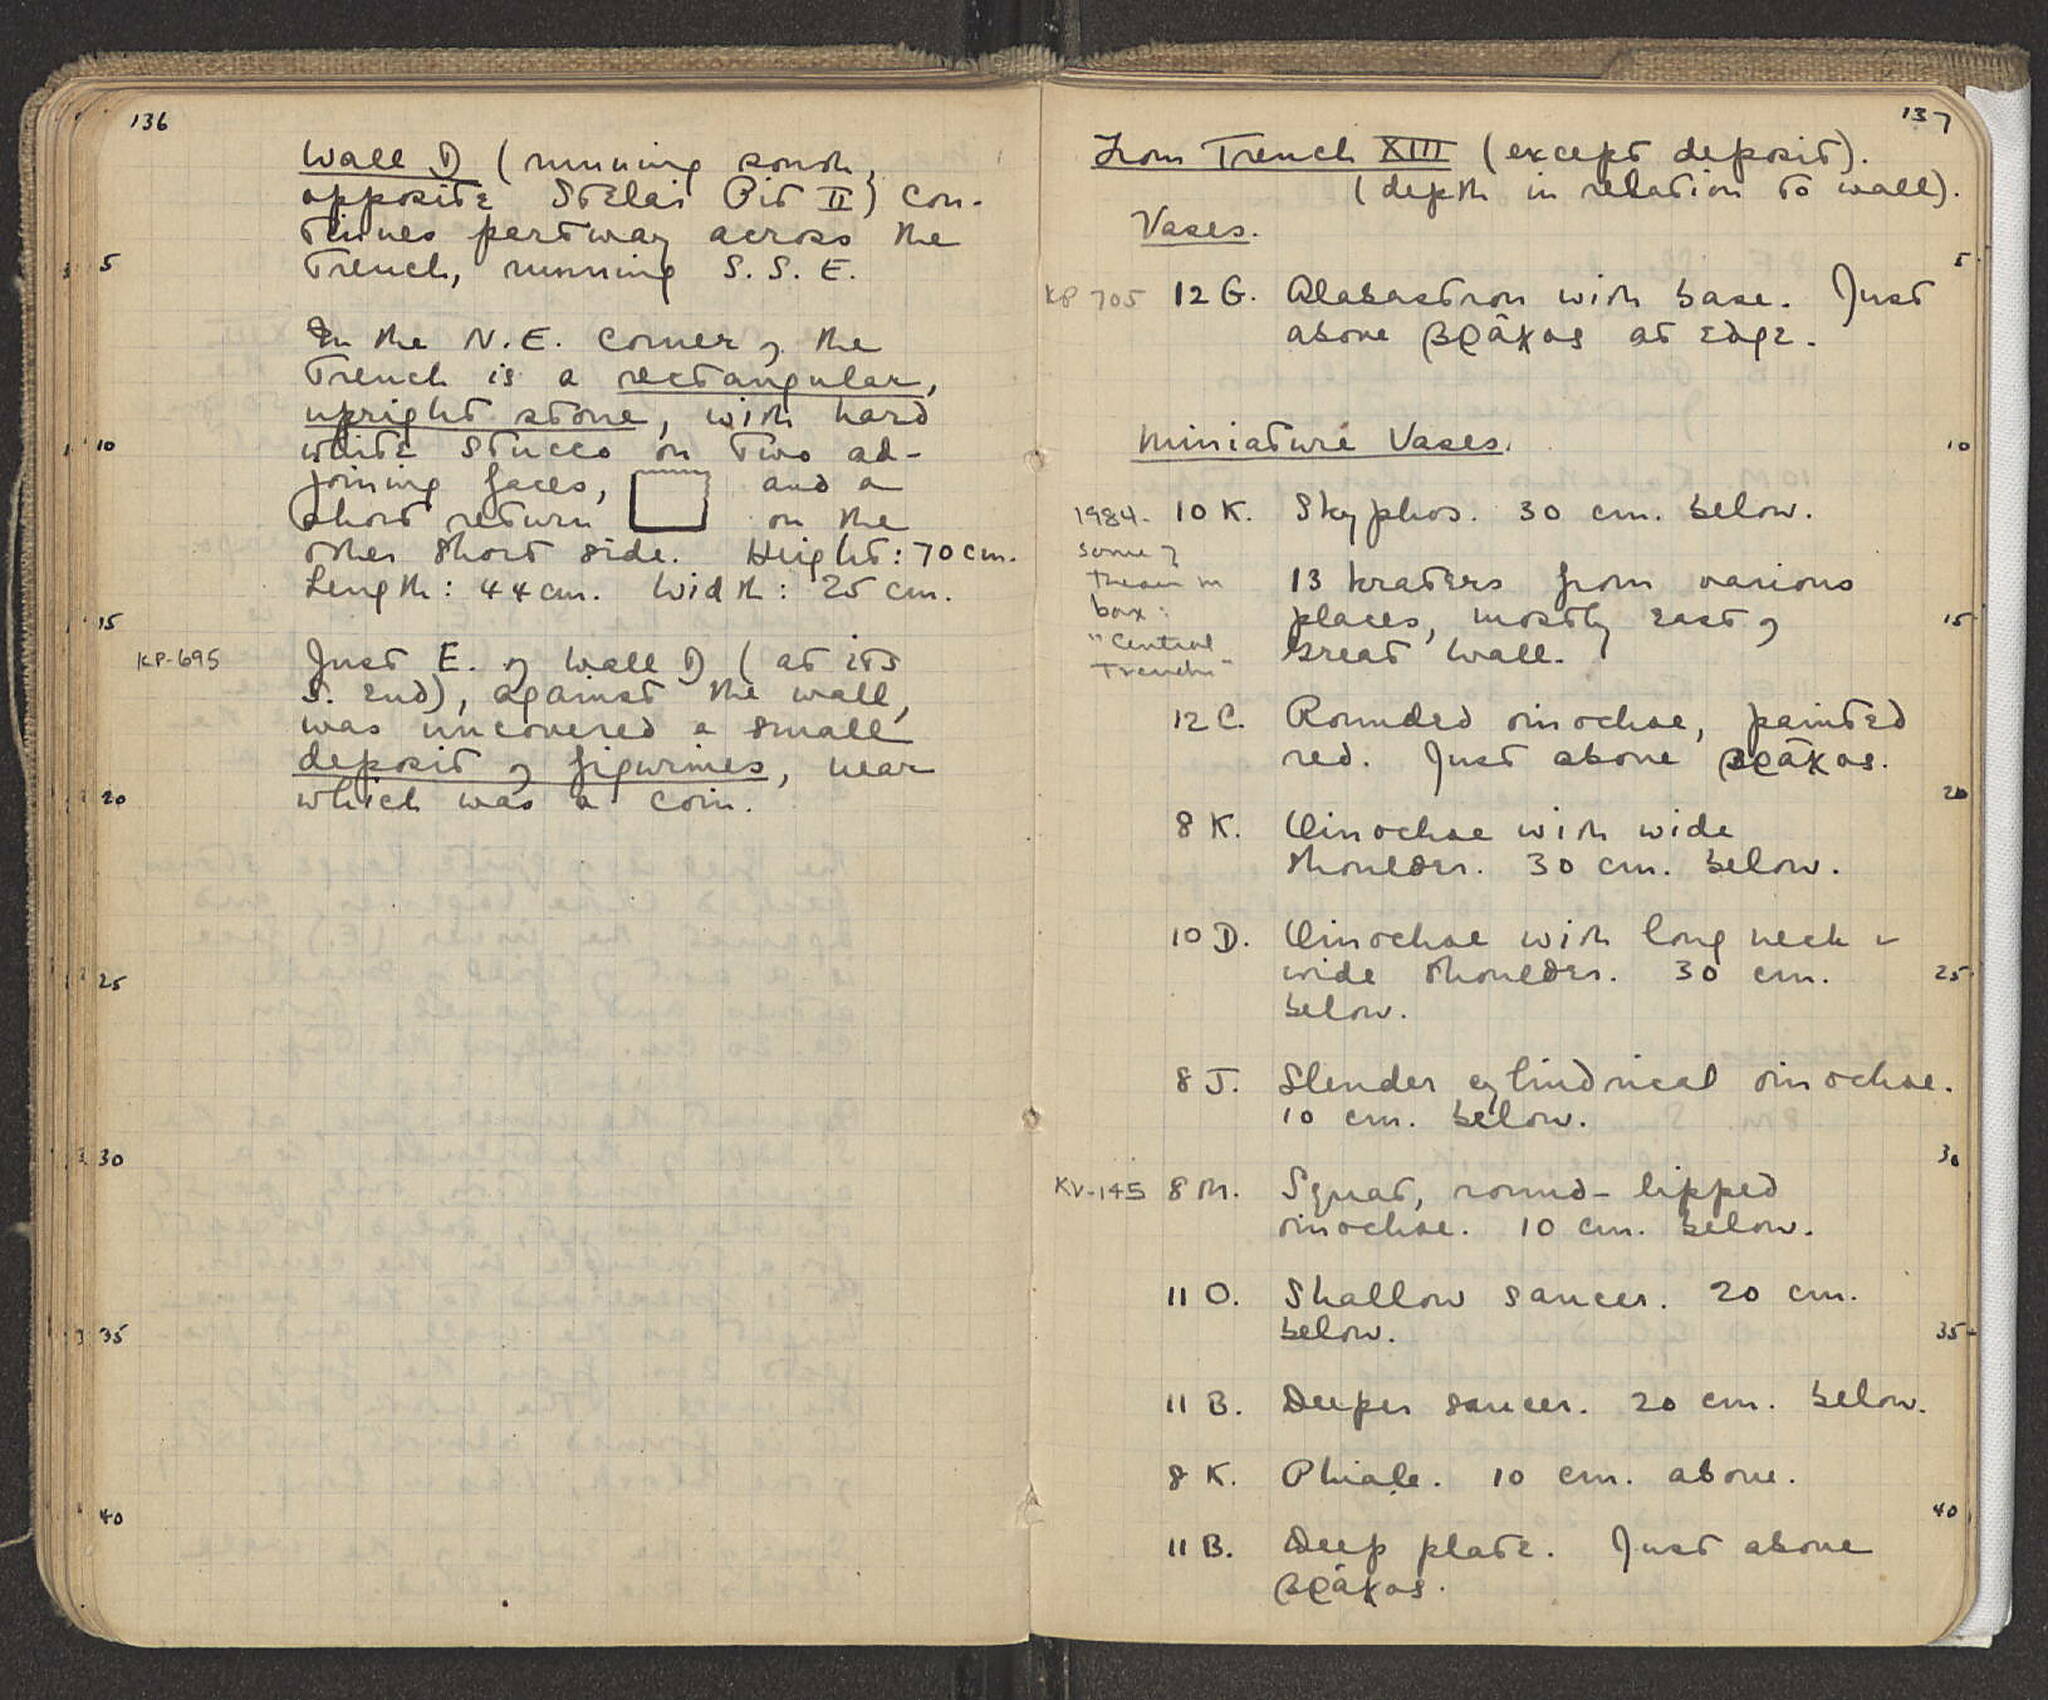 136
Wall D (running south,
opposite Stelai Pit II) con-
tinues partway across the
5
trench, running S. S. E.
In the N. E. corner of the
trench is a rectangular,
upright stone, with hard
10
white stucco on two ad-
joining faces, and a
short return on the
other short side. Height: 70 cm.
Length: 44 cm. Width: 25 cm.
15
KP-695
Just E. of Wall D (at its
S. end), against the wall,
was uncovered a small
deposit of figurines, near
20
which was a coin.
25
30
35
40
137
From Trench XIII (except deposit).
(depth in relation to wall).
Vases.
5
KP 705 12 G. Alabastron with base. Just
above βράχος at edge.
Miniature Vases.
10
1984. 10 K. Skyphos. 30 cm. below.
some of
these in
box:
"Central
Trench"
13 kraters from various
places, mostly east of
15
Great Wall.
12 C. Rounded oinochoe, painted
red. Just above βράχος.
20
8 K. Oinochoe with wide
shoulder. 30 cm. below.
10 D. Oinochoe with long neck &
wide shoulder. 30 cm.
25
below.
8 J. Slender cylindrical oinochoe.
10 cm. below.
30
KV-145 8 M. Squat, round-lipped
oinochoe. 10 cm. below.
11 O. Shallow saucer. 20 cm.
below.
35
11 B. Deeper saucer. 20 cm. below.
8 K. Phiale. 10 cm. above.
40
11 B. Deep plate. Just above
βράχος.